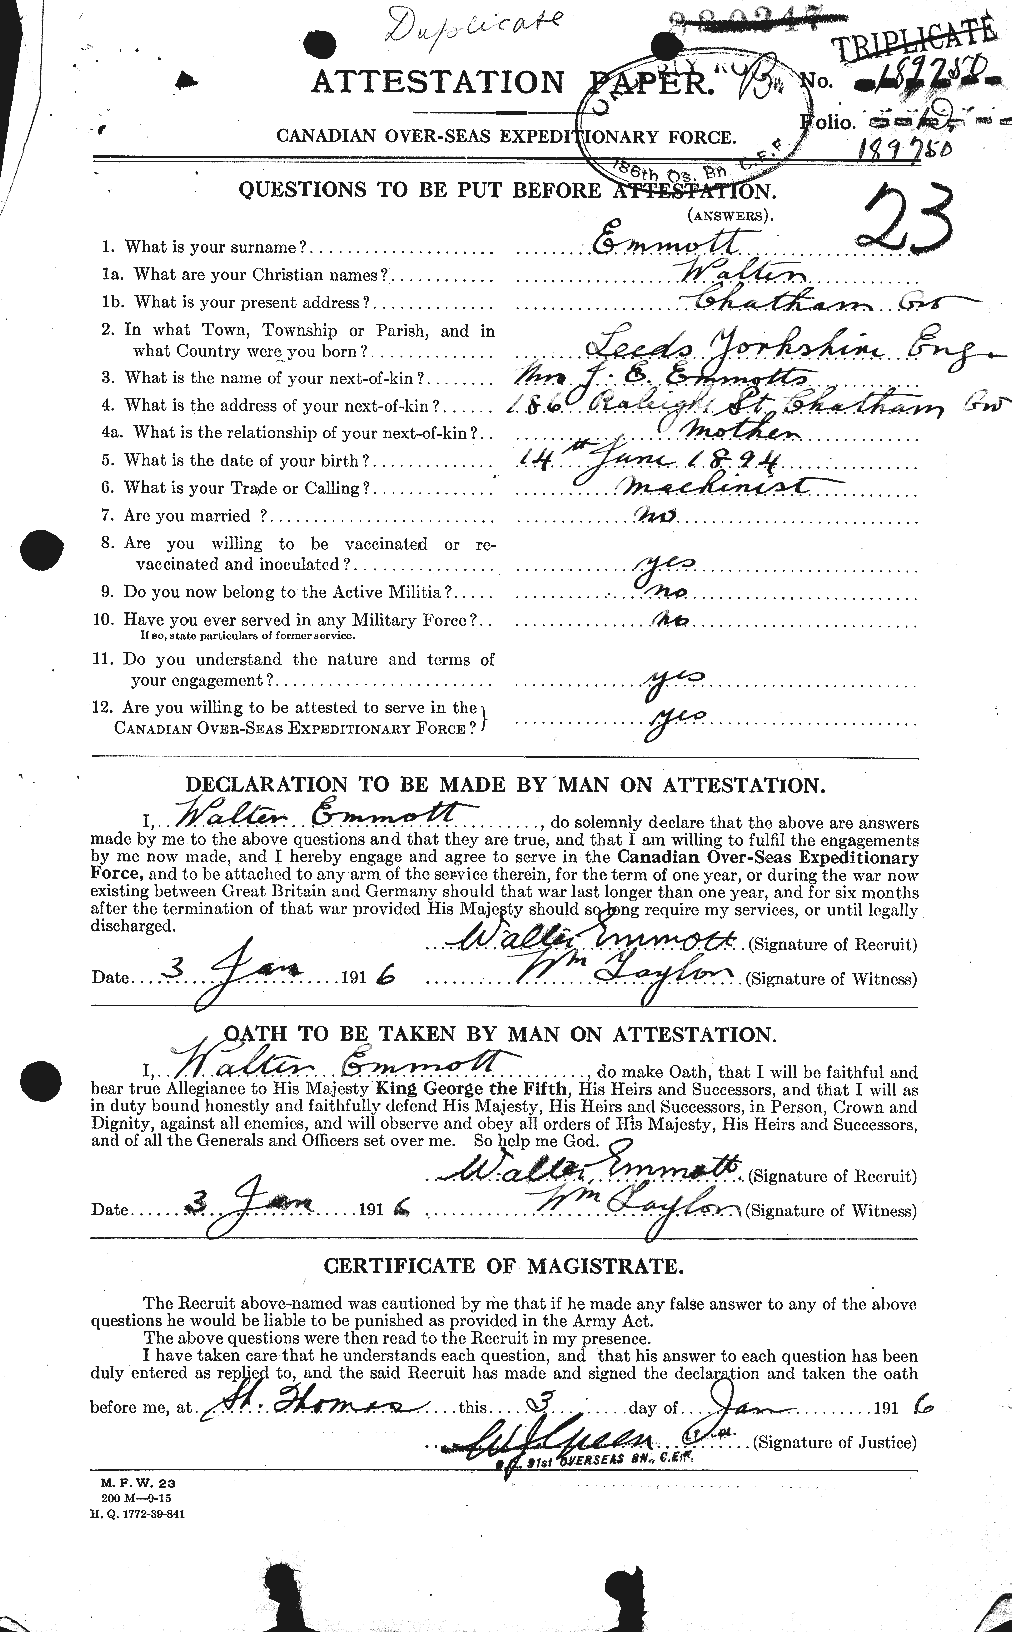 Duplicate
TRIPLICATE
ATTESTATION PAPER.
No. 189750
Folio.
189750
CANADIAN OVER-SEAS EXPEDITIONARY FORCE.
186th Os. Bn. C.E.F.
QUESTIONS TO BE PUT BEFORE ATTESTATION.
23
(ANSWERS).
1. What is your surname? Emmott
1a. What are your Christian names? Walter
1b. What is your present address? Chatham Ont
2. In what Town, Township or Parish, and in
what Country were you born? Leeds Yorkshire Eng.
3. What is the name of your next-of-kin? Mrs J. E. Emmotts
4. What is the address of your next-of-kin? 186 Raleigh St Chatham Ont
4a. What is the relationship of your next-of-kin? Mother
5. What is the date of your birth? 14th June 1894
6. What is your Trade or Calling? Machinist
7. Are you married ? no
8. Are you willing to be vaccinated or re-
vaccinated and inoculated? yes
9. Do you now belong to the Active Militia? no
10. Have you ever served in any Military Force? no
If so, state particulars of former service.
11. Do you understand the nature and terms of
your engagement? yes
12. Are you willing to be attested to serve in the
CANADIAN OVER-SEAS EXPEDITIONARY FORCE? yes
DECLARATION TO BE MADE BY MAN ON ATTESTATION.
I, Walter Emmott, do solemnly declare that the above are answers
made by me to the above questions and that they are true, and that I am willing to fulfil the engagements
by me now made, and I hereby engage and agree to serve in the Canadian Over-Seas Expeditionary
Force, and to be attached to any arm of the service therein, for the term of one year, or during the war now
existing between Great Britain and Germany should that war last longer than one year, and for six months
after the termination of that war provided His Majesty should so long require my services, or until legally
discharged.
Walter Emmott (Signature of Recruit)
Date 3 Jan 1916 Wm Taylor (Signature of Witness)
OATH TO BE TAKEN BY MAN ON ATTESTATION.
I, Walter Emmott, do make Oath, that I will be faithful and
bear true Allegiance to His Majesty King George the Fifth, His Heirs and Successors, and that I will as
in duty bound honestly and faithfully defend His Majesty, His Heirs and Successors, in Person, Crown and
Dignity, against all enemies, and will observe and obey all orders of His Majesty, His Heirs and Successors,
and of all the Generals and Officers set over me. So help me God.
Walter Emmott (Signature of Recruit)
Date 3 Jan 1916 Wm Taylor (Signature of Witness)
CERTIFICATE OF MAGISTRATE.
The Recruit above-named was cautioned by me that if he made any false answer to any of the above
questions he would be liable to be punished as provided in the Army Act.
The above questions were then read to the Recruit in my presence.
I have taken care that he understands each question, and that his answer to each question has been
duly entered as replied to, and the said Recruit has made and signed the declaration and taken the oath
before me, at St. Thomas this 3 day of Jan 1916
W J Green (Signature of Justice)
91st OVERSEAS BN., C.E.F.
M. F. W. 23
200 M—9-15
H. Q. 1772-39-841